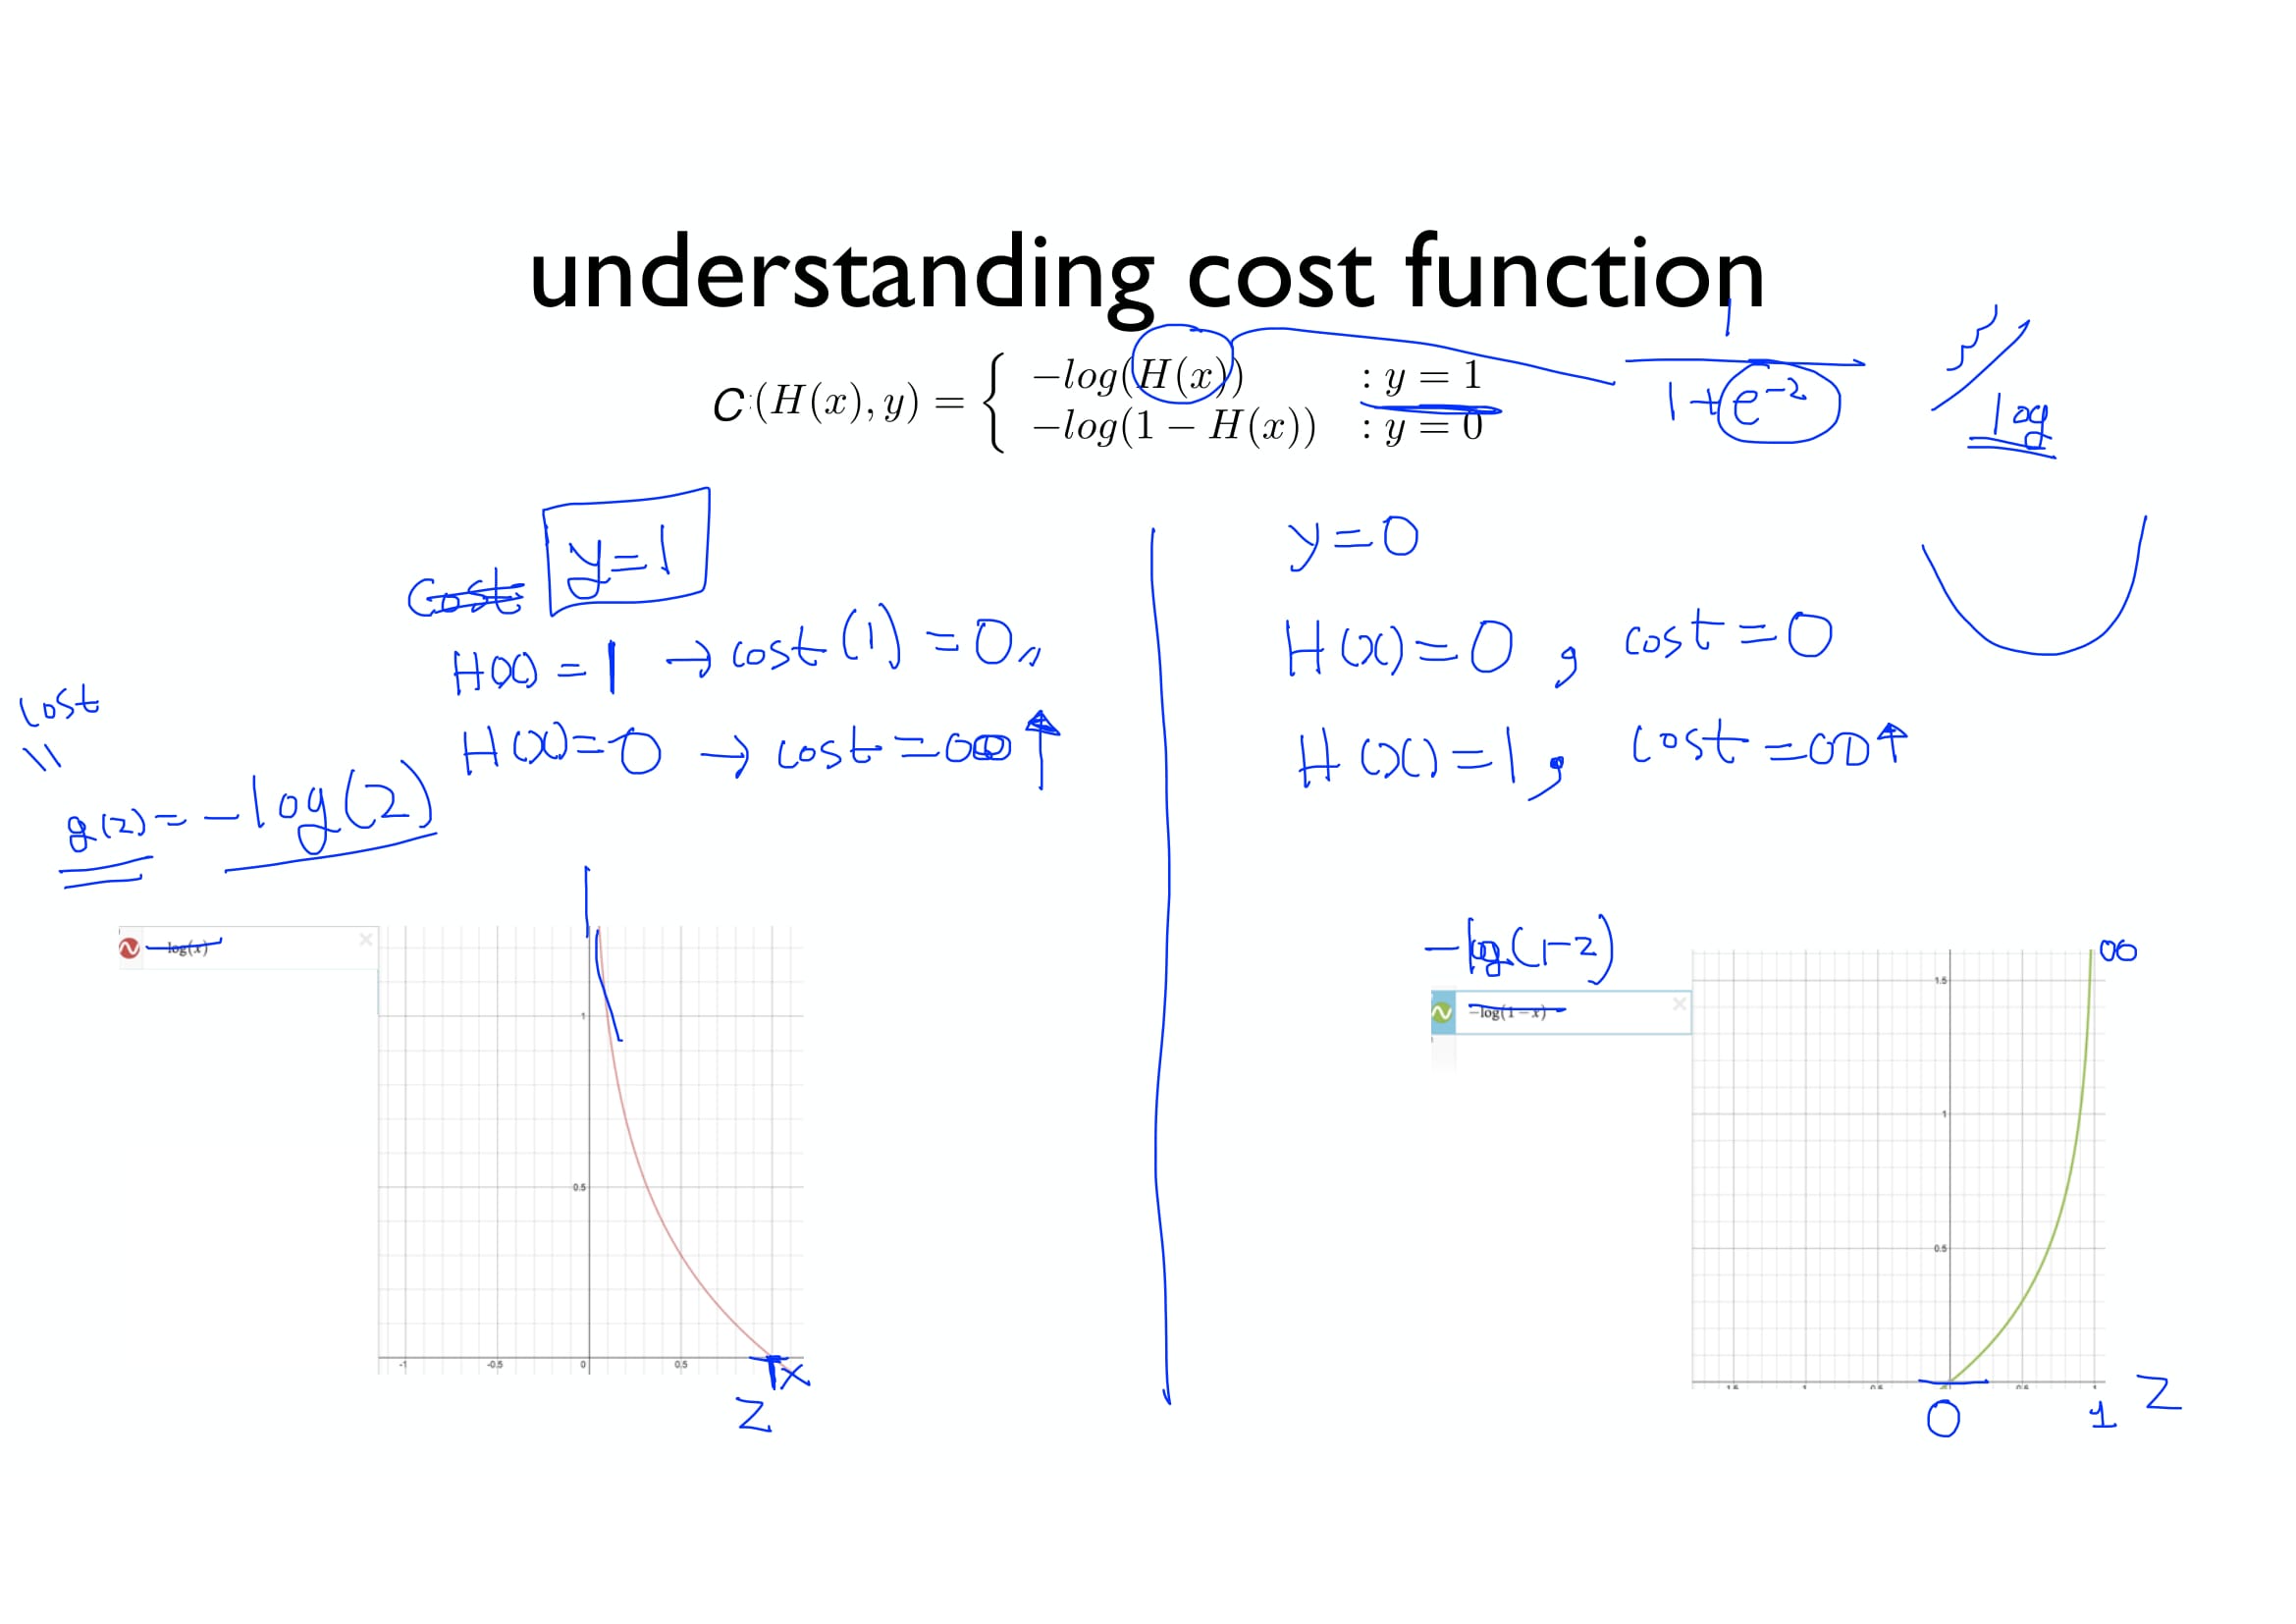 understanding cost function
C:(H(x), y) = { −log(H(x)) : y = 1
−log(1 − H(x)) : y = 0
1
1+e^-z
log
y=1
Cost
H(x) = 1 → cost(1) = 0
H(x)=0 → cost = ∞ ↑
cost
=
g(z) = -log(z)
y=0
H(x)=0, cost=0
H(x)=1, cost=∞ ↑
−log(x)
1
0.5
-1 -0.5 0 0.5
1 x
z
-log(1-z)
∞
−log(1−x)
1.5
1
0.5
1.5 1 0.5 0.5 1
0 1 z